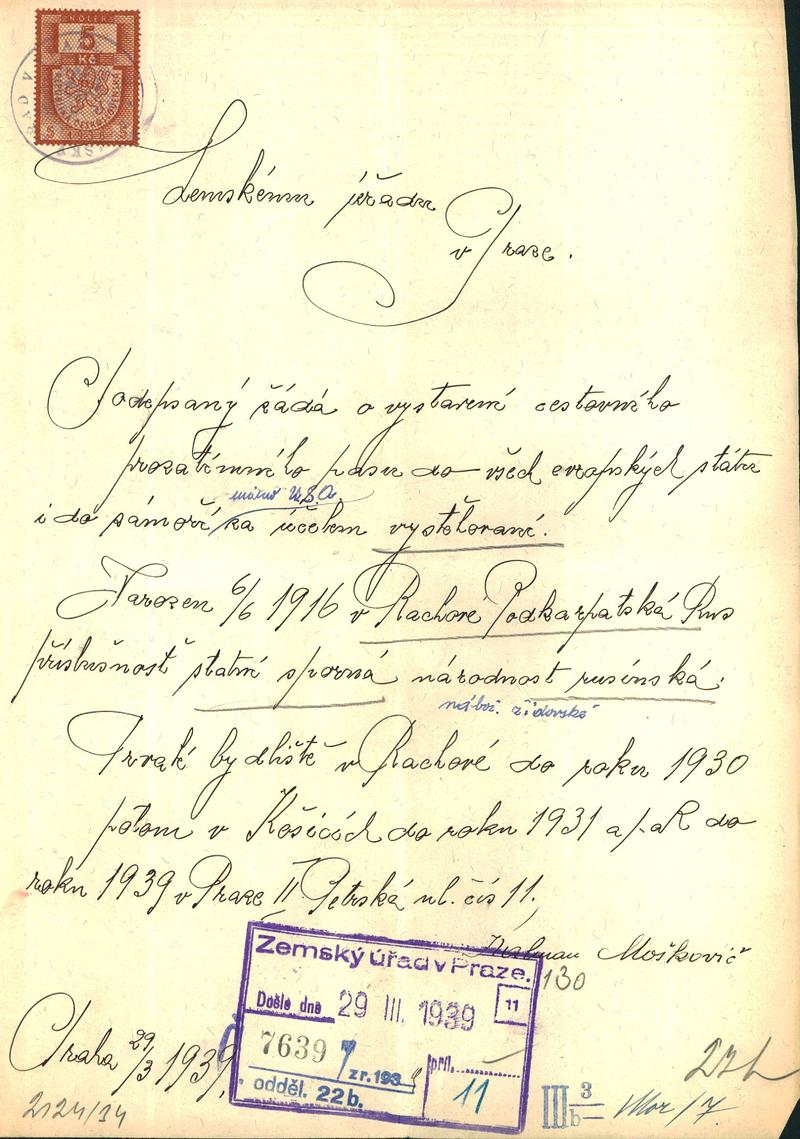 KOLEK
5
Kč
Zemskému úřadu
v Praze.
Podepsaný žádá o vystavení cestovního
prozatímního pasu do všech evropských států
mimo U.S.A.
i do zámoří za účelem vystěhování.
Narozen 6/6 1916 v Rachově Podkarpatská Rus
příslušnost státní sporná národnost rusínská.
nábož. židovské
Trvalé bydliště v Rachově do roku 1930
potom v Košicích do roku 1931 a pak do
roku 1939 v Praze II Petrská ul. čís 11.
Kalman Moškovič
130
Zemský úřad v Praze.
Došlo dne 29 III. 1939
11
7639
zr. 193
odděl. 22b.
příl.
11
Praha 29/3 1939.
2124/34
III 3
b